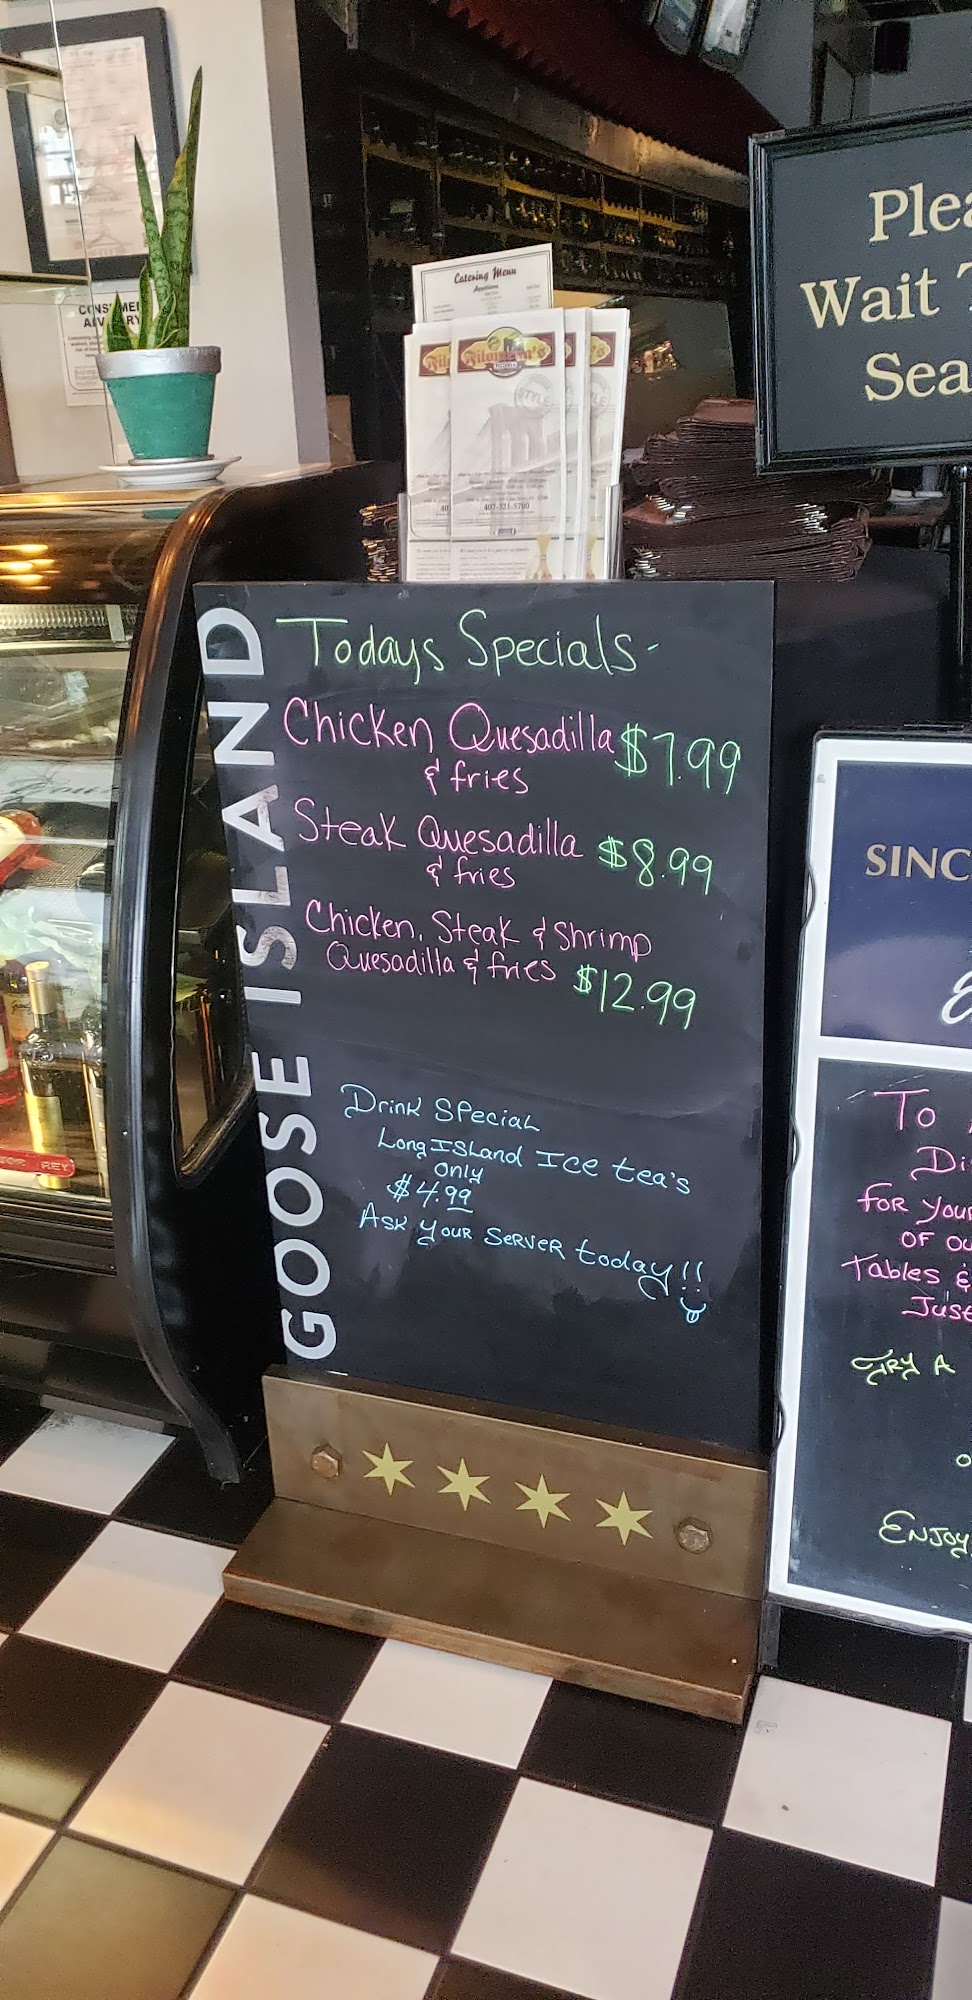 Catering Menu
Appetizers
PIZZERIA
STYLE
407-321-5700
CONSUMER
Plea
Wait T
Sea
GOOSE ISLAND
Todays Specials-
Chicken Quesadilla $7.99
& fries
Steak Quesadilla $8.99
& fries
Chicken, Steak & Shrimp
Quesadilla & fries $12.99
Drink Special
Long ISLand Ice tea's
only
$4.99
Ask Your Server today!!
SINC
To
Di
for your
of ou
Tables &
Just
Try A
o
Enjoy